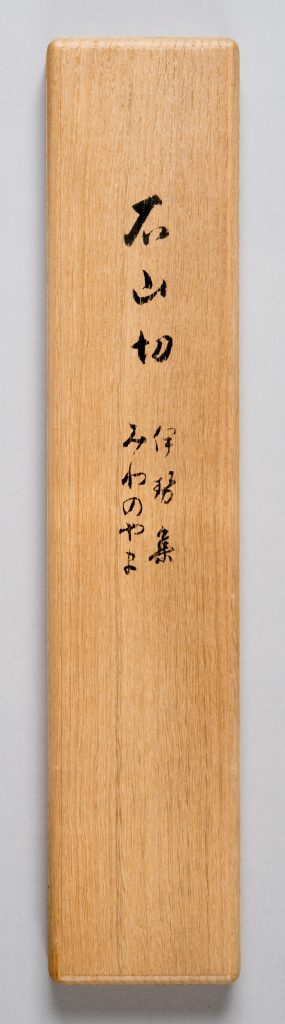 石山切
伊勢集
みわのやま